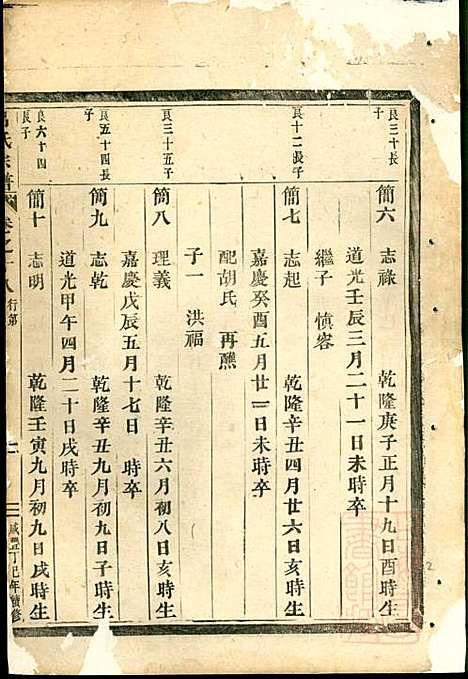 良三十長子
簡六 志祿 乾隆庚子正月十九日酉時生
道光壬辰三月二十一日未時卒
繼子 慎容
良十二長子
簡七 志起 乾隆辛丑四月廿六日亥時生
嘉慶癸酉五月廿一日未時卒
配胡氏 再醮
子一 洪福
良三十五子
簡八 理義 乾隆辛丑六月初八日亥時生
嘉慶戊辰五月十七日 時卒
良五十四長子
簡九 志乾 乾隆辛丑九月初九日子時生
道光甲午四月二十日戌時卒
良六十四長子
簡十 志明 乾隆壬寅九月初九日戌時生
氏宗譜 卷之十八 行第 咸豐丁巳年續修